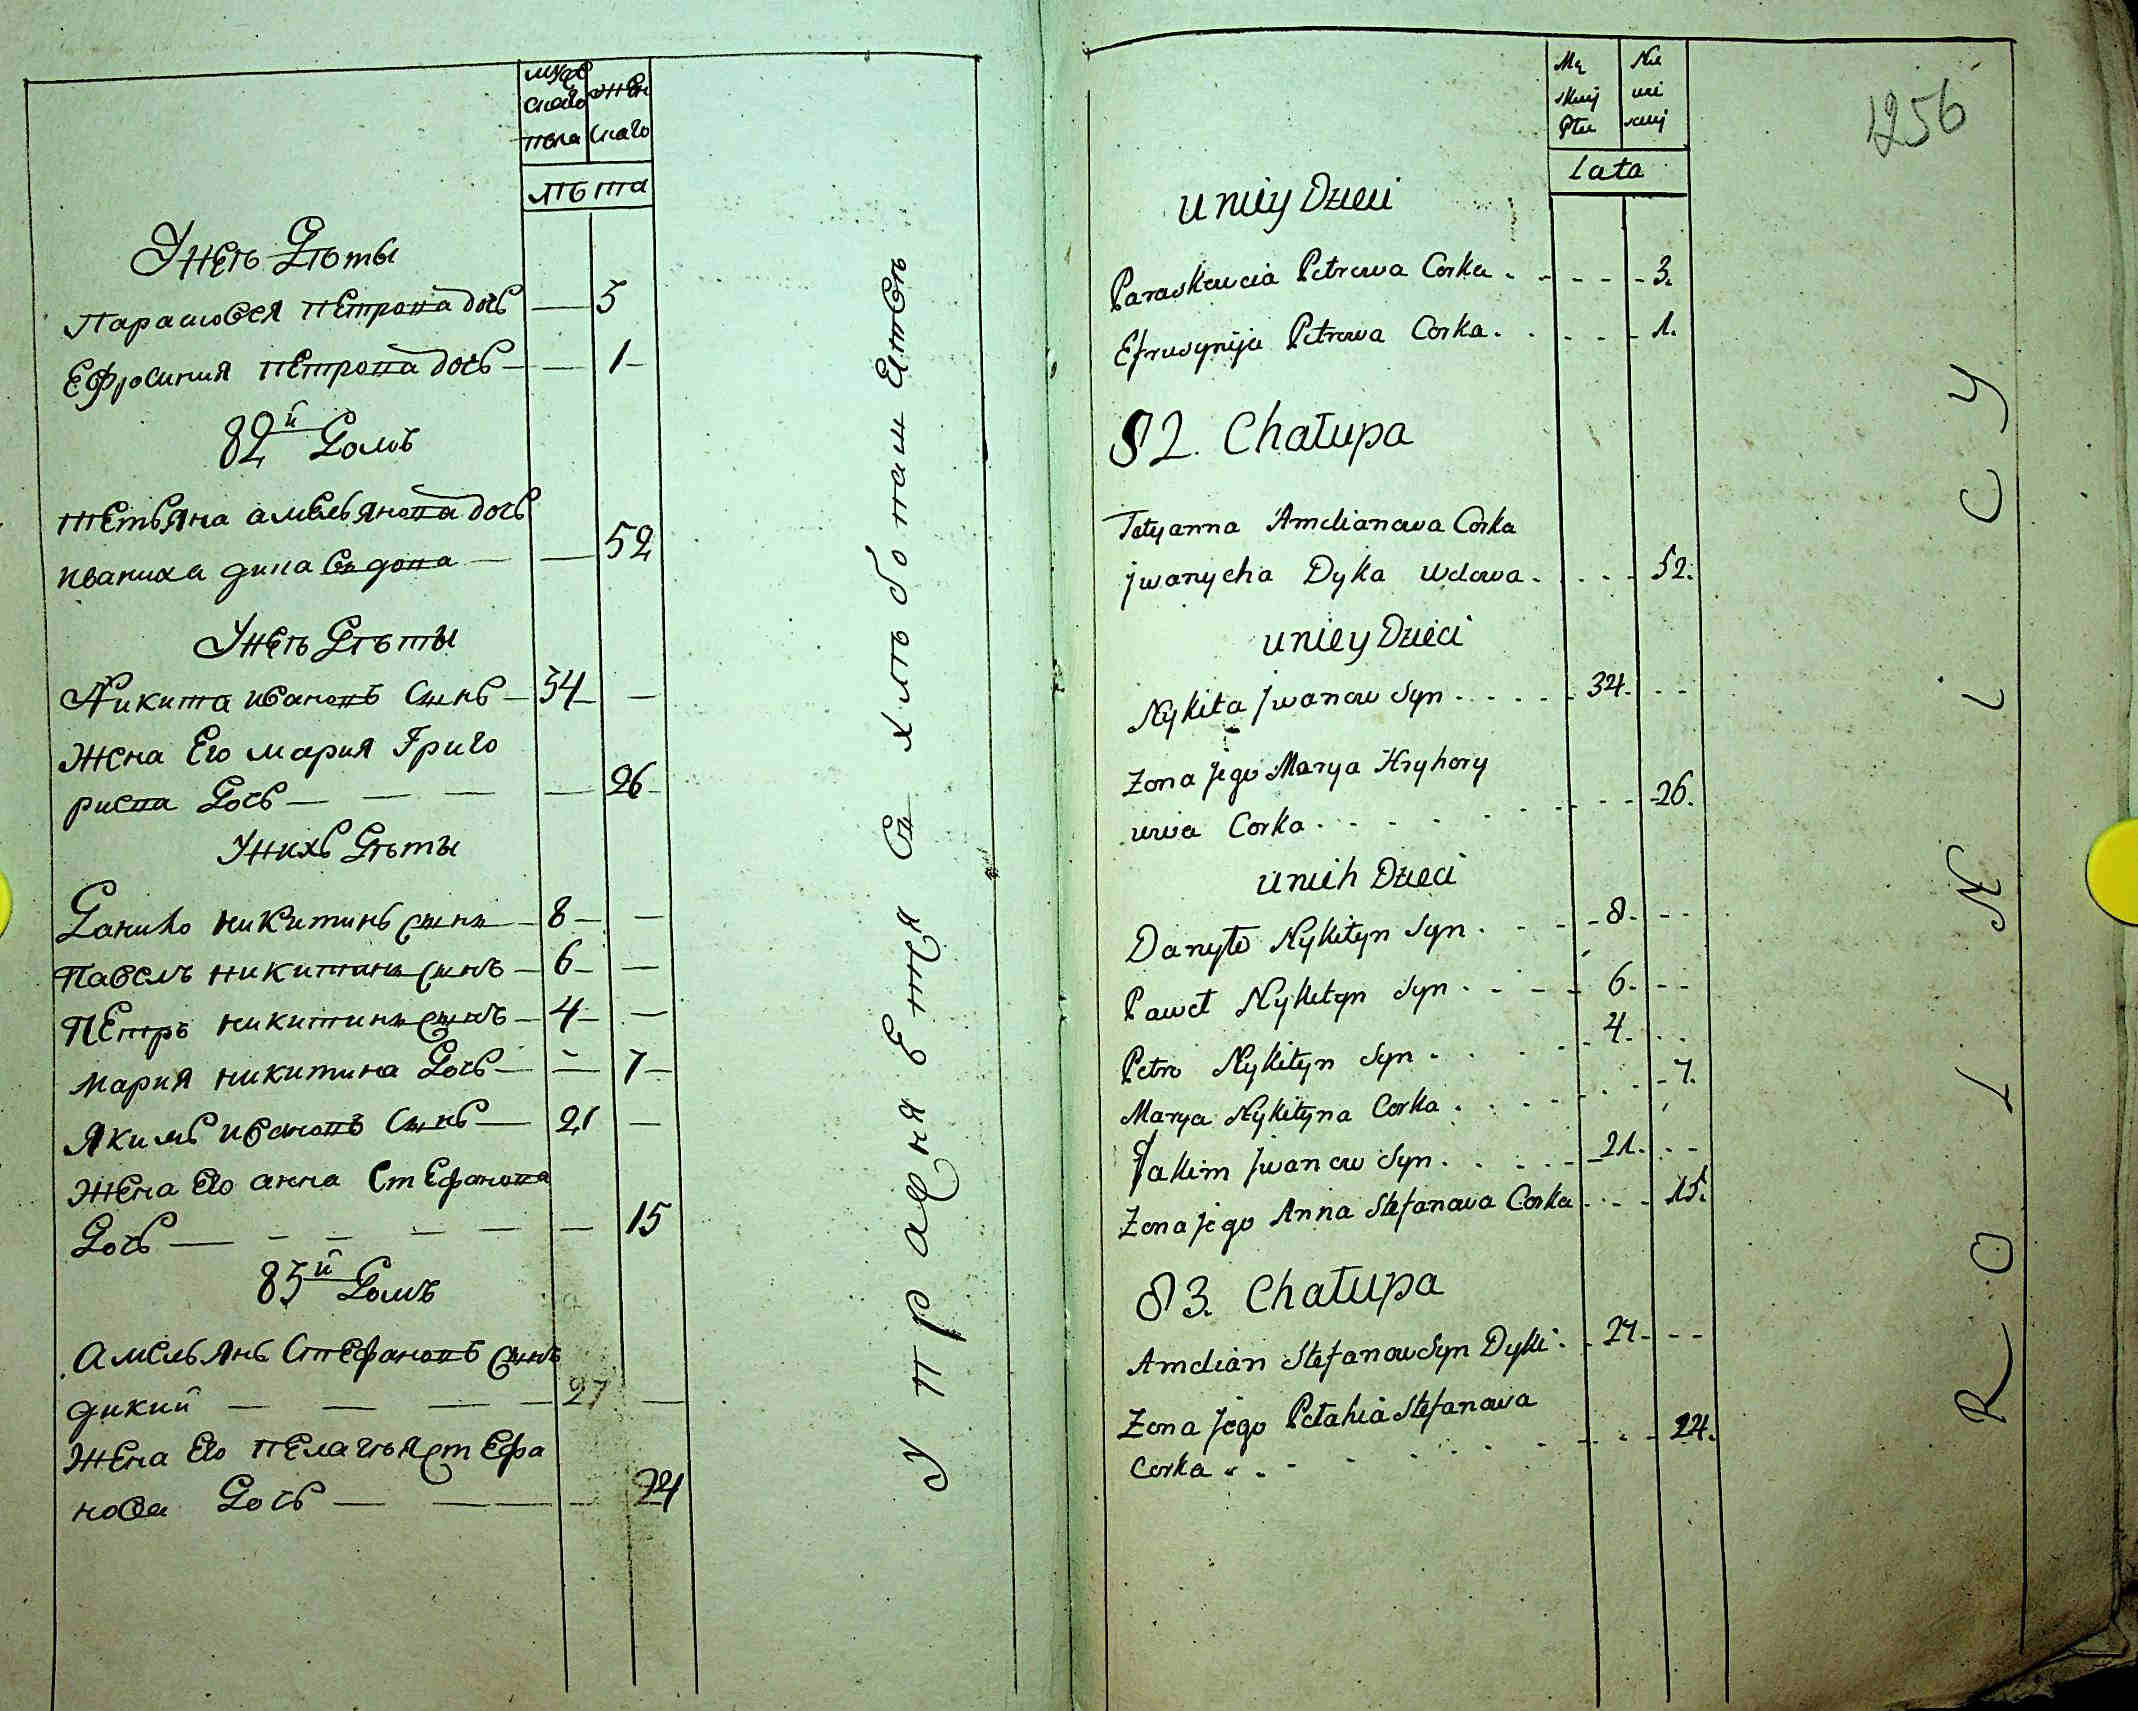 муж
скаго
пола
жен
скаго
лѣта
Унеѣ Дѣты
Парасковея Петрова дочь — 3
Ефросиния Петрова дочь — — 1 —
82й Домъ
Тетьяна Амельянова дочь
Иваниха дика вдова — — 52
Унеѣ Дѣты
Никита Ивановъ Сынъ — 34 — —
Жена Его Мария Григо
риева Дочь — — — — 26 —
Унихъ Дѣты
Данило Никитинъ сынъ — 8 — —
Павелъ Никитинъ сынъ — 6 — —
Петръ Никитинъ сынъ — 4 — —
Мария Никитина Дочь — — 7 —
Якимъ Ивановъ Сынъ — 21 —
Жена Его Анна Стефанова
Дочь — — — — — — 15
83й Домъ
Амельянъ Стефановъ сынъ
дикий — — — — 27 —
Жена Его Пелагѣя Стефа
нова Дочь — — — — 24
Упражняется в хлѣбопашествѣ
1256
Mę
skiej
Płci
Nie
wie
sciej
Lata
u niiy Dzieci
Paraskewia Petrowa Corka . - - - - 3.
Efrusynija Petrowa Corka . . . . - 1.
82. Chałupa
Tetyanna Amelianowa Corka
jwanycha Dyka Wdowa . . . . 52.
u niey Dzieci
Nykita Jwanow Syn . . . . . 34. - -
Zona jego Marya Hryhory
iwa Corka . - - - - - - - 26.
u nich Dzieci
Danyło Nykityn Syn . - - - 8. - -
Paweł Nykityn Syn . - - - 6. - -
Petro Nykityn Syn . . . . - 4. . .
Marya Nykityna Corka . . . . . - 7.
Jakim Jwanow Syn . . . . - 21. - -
Zona jego Anna Stefanowa Corka . - - 15.
83. Chałupa
Amelian Stefanow Syn Dyki . - 27. - -
Zona jego Pełahia Stefanowa
Corka . . - - - - - - - 24.
ROLNICY